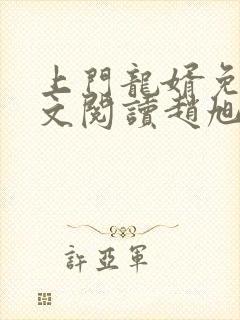 上門龍婿免
文閱讀趙旭
許亞軍